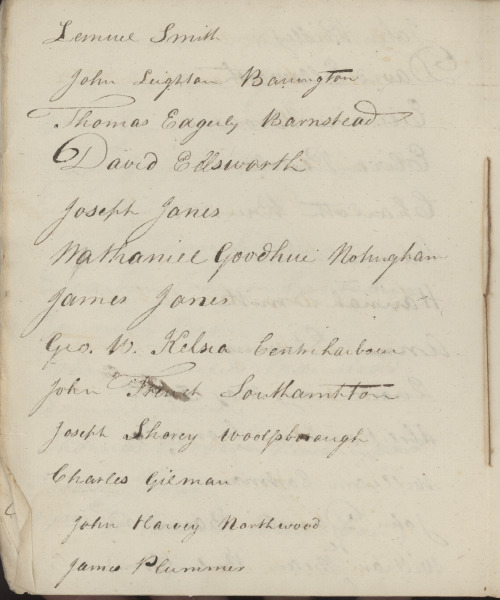 Lemuel Smith
John Leighton Barrington
Thomas Edgerly Barnstead
David Ellsworth
Joseph Janes
Nathaniel Goodhue Notingham
James Janes
Geo. W. Kelsea Centreharbour
John French Southamtton
Joseph Shorey Woolfborough
Charles Gilman
John Harvey Northwood
James Plummer